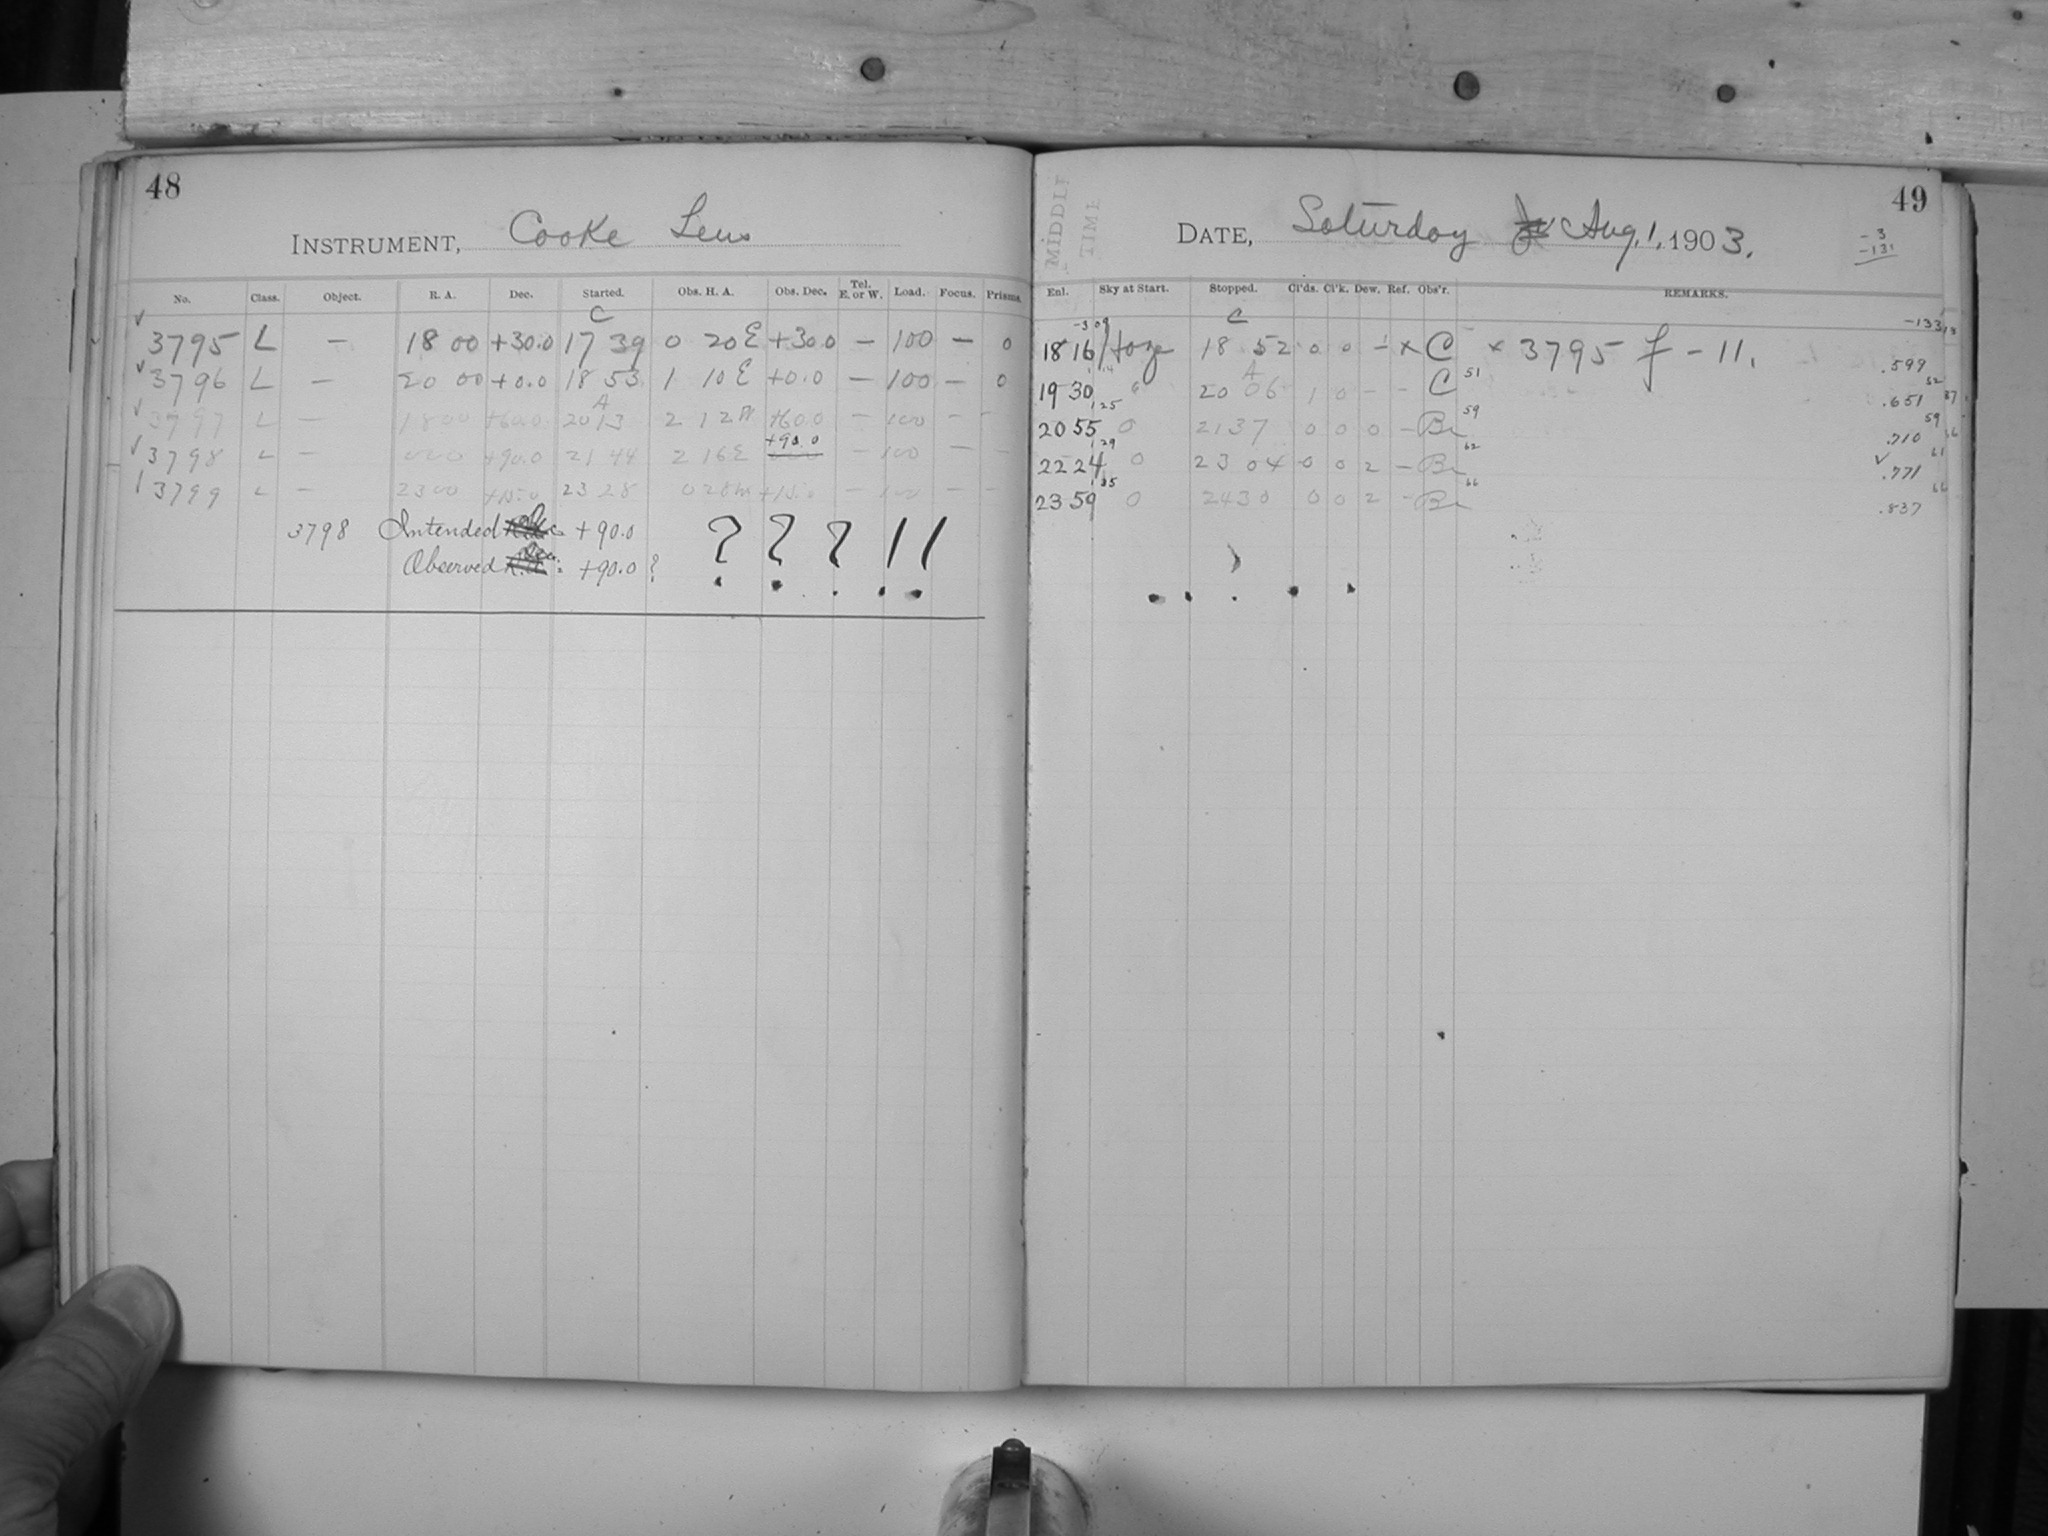 48
INSTRUMENT, Cooke Lens
No. Class. Object. R. A. Dec. Started. Obs. H. A. Obs. Dec. Tel. E. or W. Load. Focus. Prisms.
C
3795 L — 18 00 +30.0 17 39 0 20 E +30.0 — 100 — 0
3796 L — 20 00 +0.0 18 53 1 10 E +0.0 — 100 — 0
A
3797 L — 18 00 +60.0 20 13 2 12 W +60.0 — 100 — -
+90.0
3798 L — 0 00 +90.0 21 44 2 16 E — 100 — -
3799 L — 23 00 +15.0 23 28 0 28 W +15.0 — 100 — -
3798 Intended Dec. +90.0 ? ? ? ! !
Observed Dec. : +90.0 ?
49
MIDDLE
TIME
DATE, Saturday Aug. 1, 1903.
-3
-131
Enl. Sky at Start. Stopped. Cl'ds. Cl'k. Dew. Ref. Obs'r. REMARKS.
C
-133
18 16 Haze 18 52 0 0 - x C x 3795 f - 11.
.599
A
19 30 " 20 06 1 0 - - C 51
.651 52
20 55 0 21 37 0 0 0 - Br 59
.710 59
22 24 0 23 04 0 0 2 - Br 62
.771 61
23 59 0 24 30 0 0 2 - Br 66
.837 66